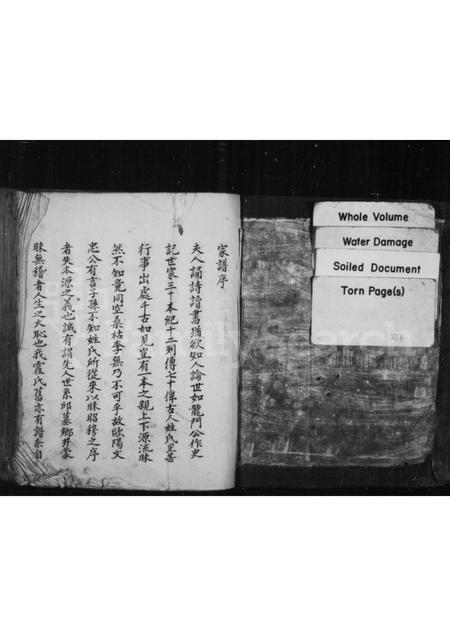 家譜序
夫人誦詩讀書猶欲知人論世如龍門公作史
記世家三十本紀十二列傳七十俾古人姓氏里居
行事出處千古如見豈有一本之親上下源流昧
然不知竟同空桑枯李無乃不可乎故歐陽文
忠公有言子孫不知姓氏所從來以昧昭穆之序
者失本源之義也誠有謂先人世系邱墓鄉井蒙
昧無稽者人生之大恥也我霍氏舊亦有譜系自
Whole Volume
Water Damage
Soiled Document
Torn Page(s)
FamilySearch